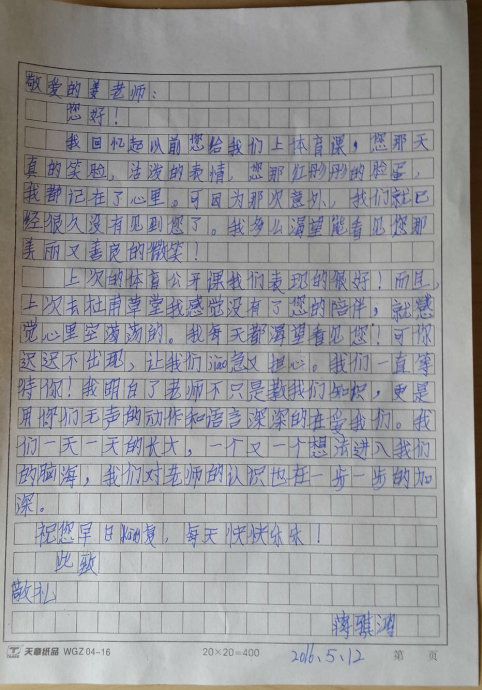 敬爱的姜老师：
您好！
我回忆起以前您给我们上体育课，您那天
真的笑脸，活泼的表情，您那红彤彤的脸蛋，
我都记在了心里。可因为那次意外，我们就已
经很久没有见到您了。我多么渴望能看见您那
美丽又善良的微笑！
上次的体育公开课我们表现的很好！而且，
上次去杜甫草堂我感觉没有了您的陪伴，就感
觉心里空荡荡的。我每天都渴望看见您！可你
迟迟不出现，让我们 急又担心。我们一直等
待你！我明白了老师不只是教我们知识，更是
用你们无声的动作和语言深深的在爱我们。我
们一天一天的长大，一个又一个想法进入我们
的脑海，我们对老师的认识也在一步一步的加
深。
祝您早日 复，每天快快乐乐！
此致
敬礼
蒋骐鸿
2016.5.12
天章纸品 WGZ 04-16 20×20=400 第 页
TANGO